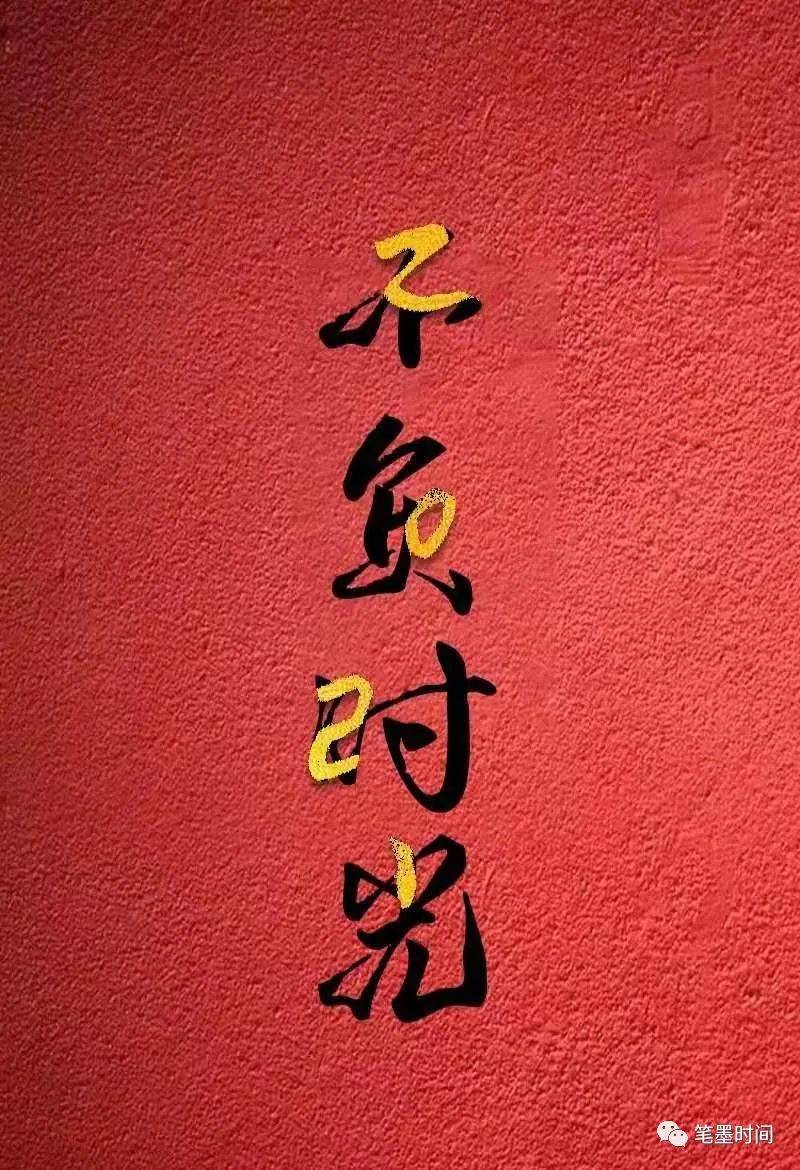 不负时光
2021
笔墨时间